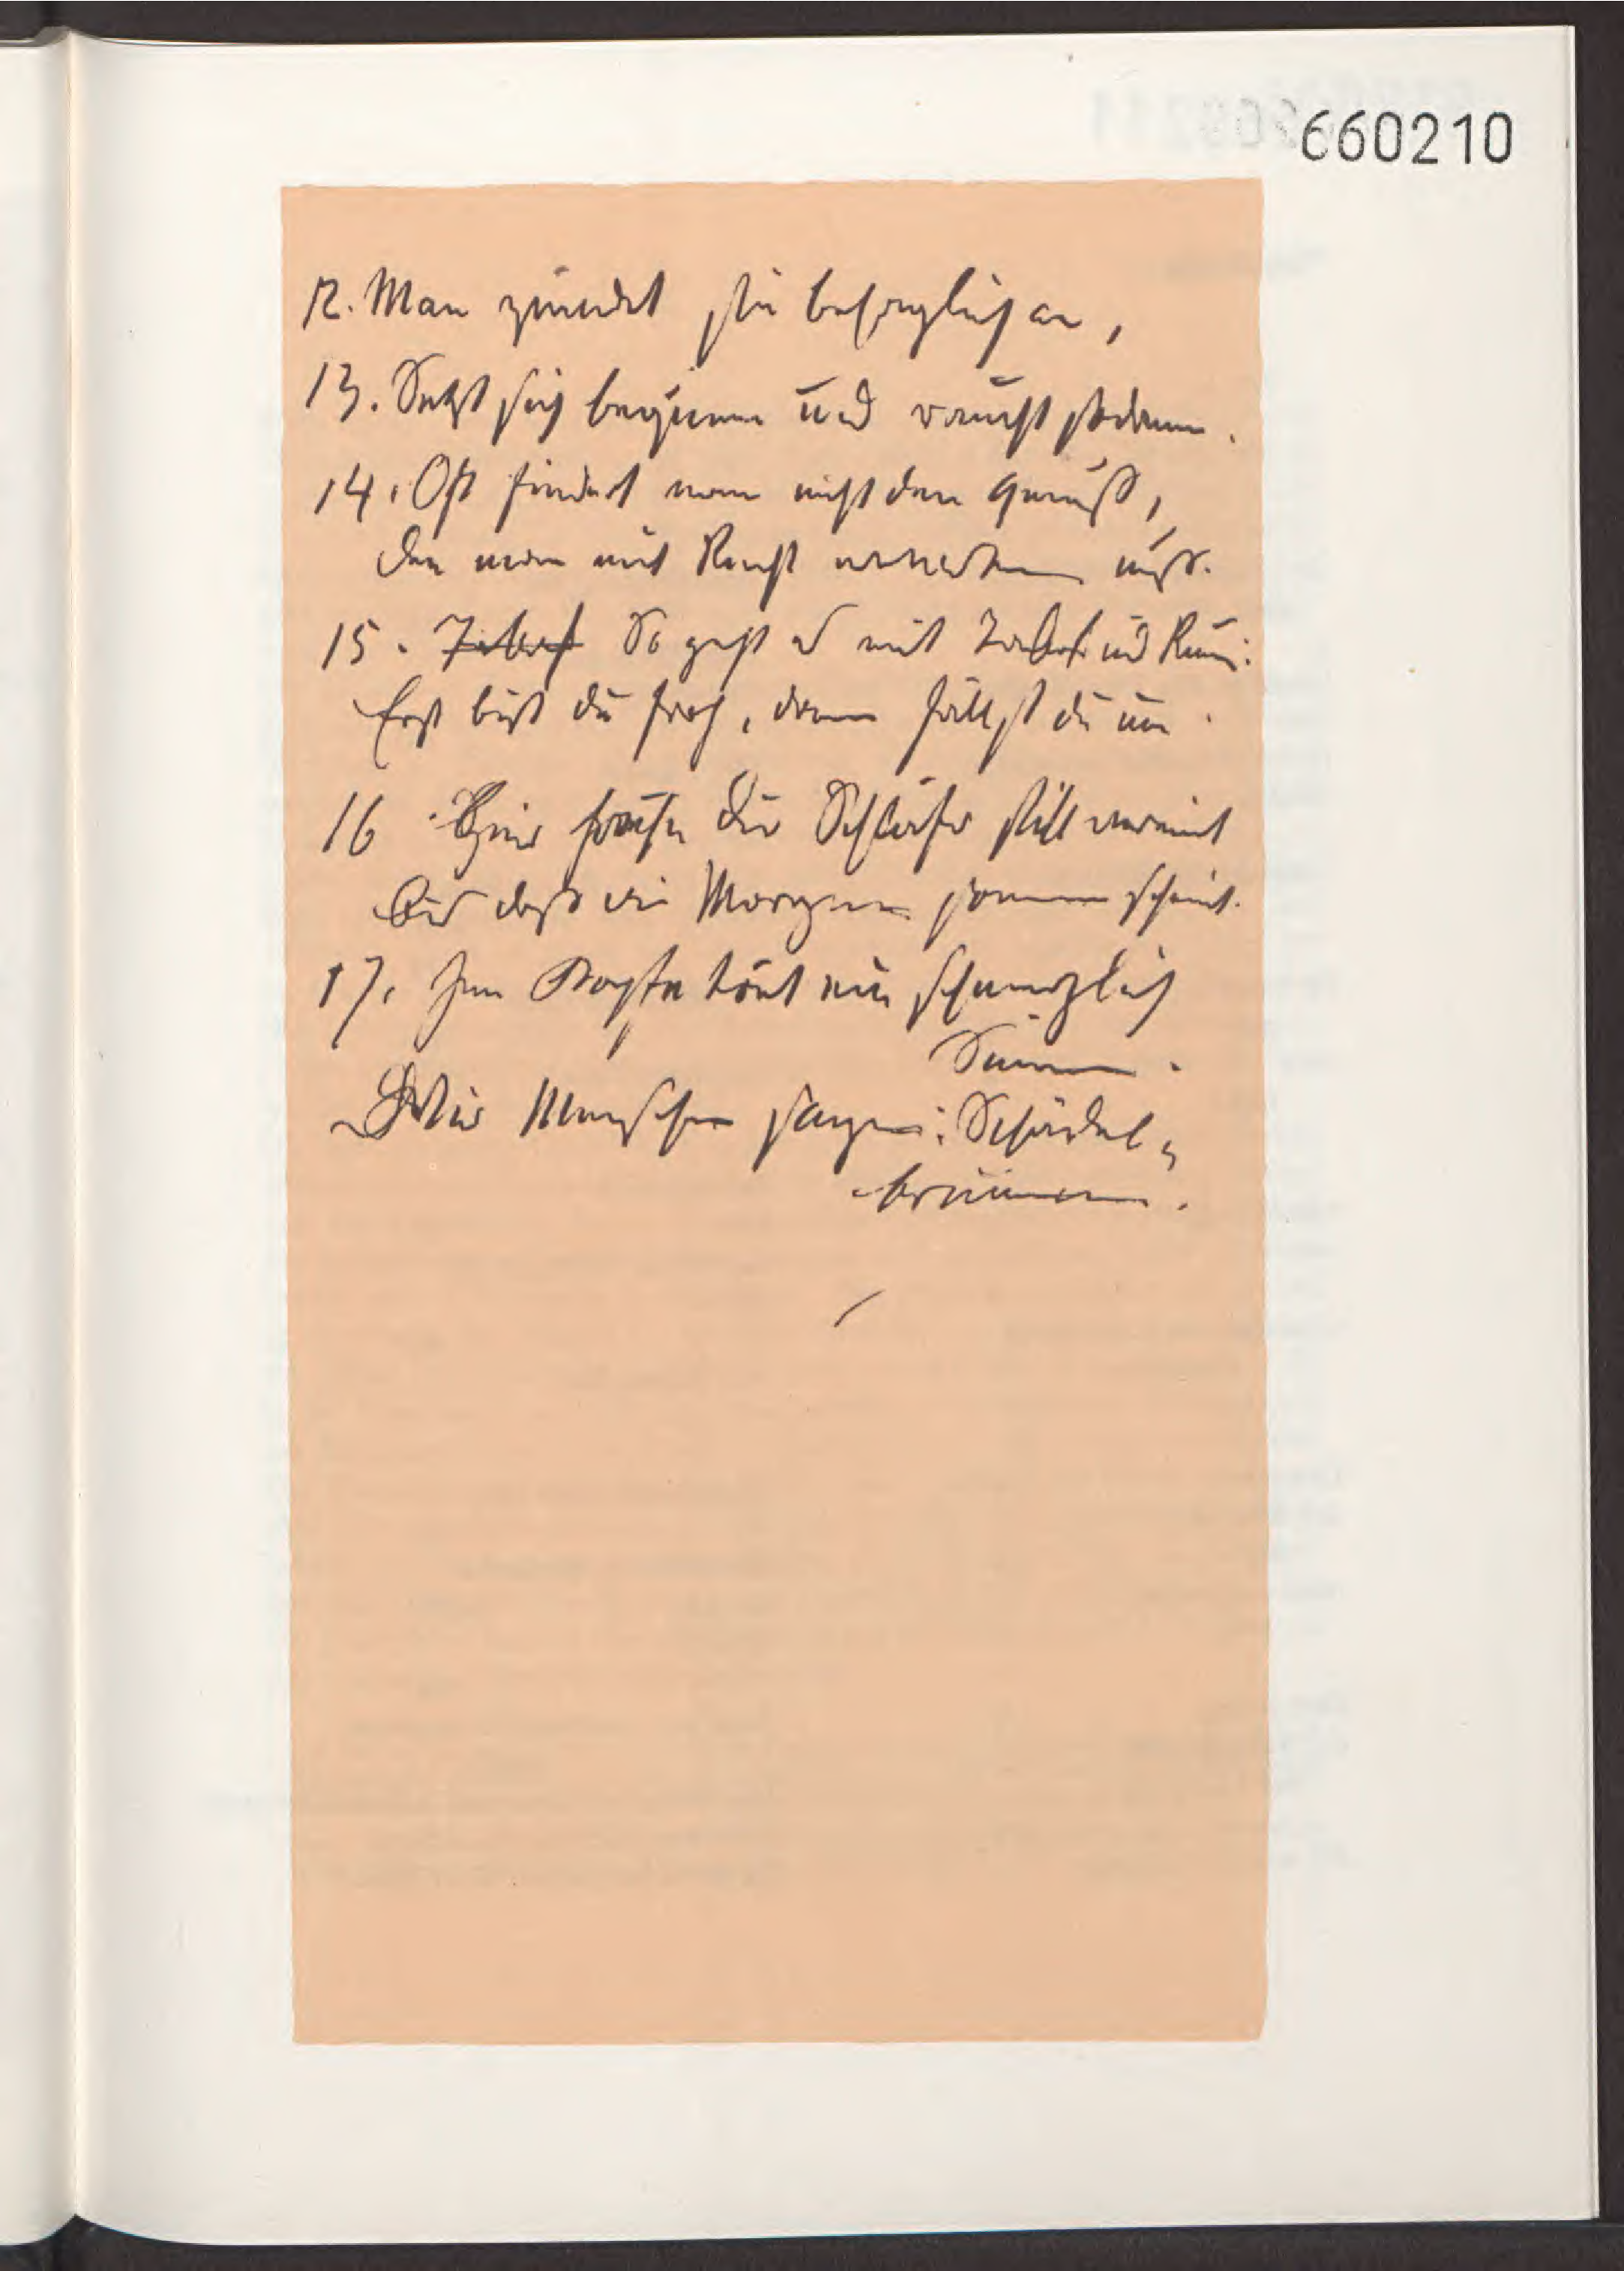 660210
12. Man zündet sie behaglich an,
13. Setzt sich bequem und raucht sodann.
14. Oft findet man nicht den Genuß,
Den man mit Recht erwarten muß.
15. Tabak So geht es mit Tabak und Rum:
Erst bist du froh, dann fällst du um.
16 Hier seh'n die Schläfer still vereint
Bis daß die Morgensonne scheint.
17. Im Kopfe tönt ein schmerzlich
Summen.
Wir Menschen sagen: Schädel-
brummen.